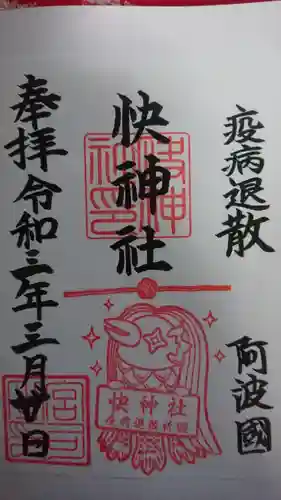 疫病退散
阿波國
快神社
奉拝令和三年三月廿日
快神社